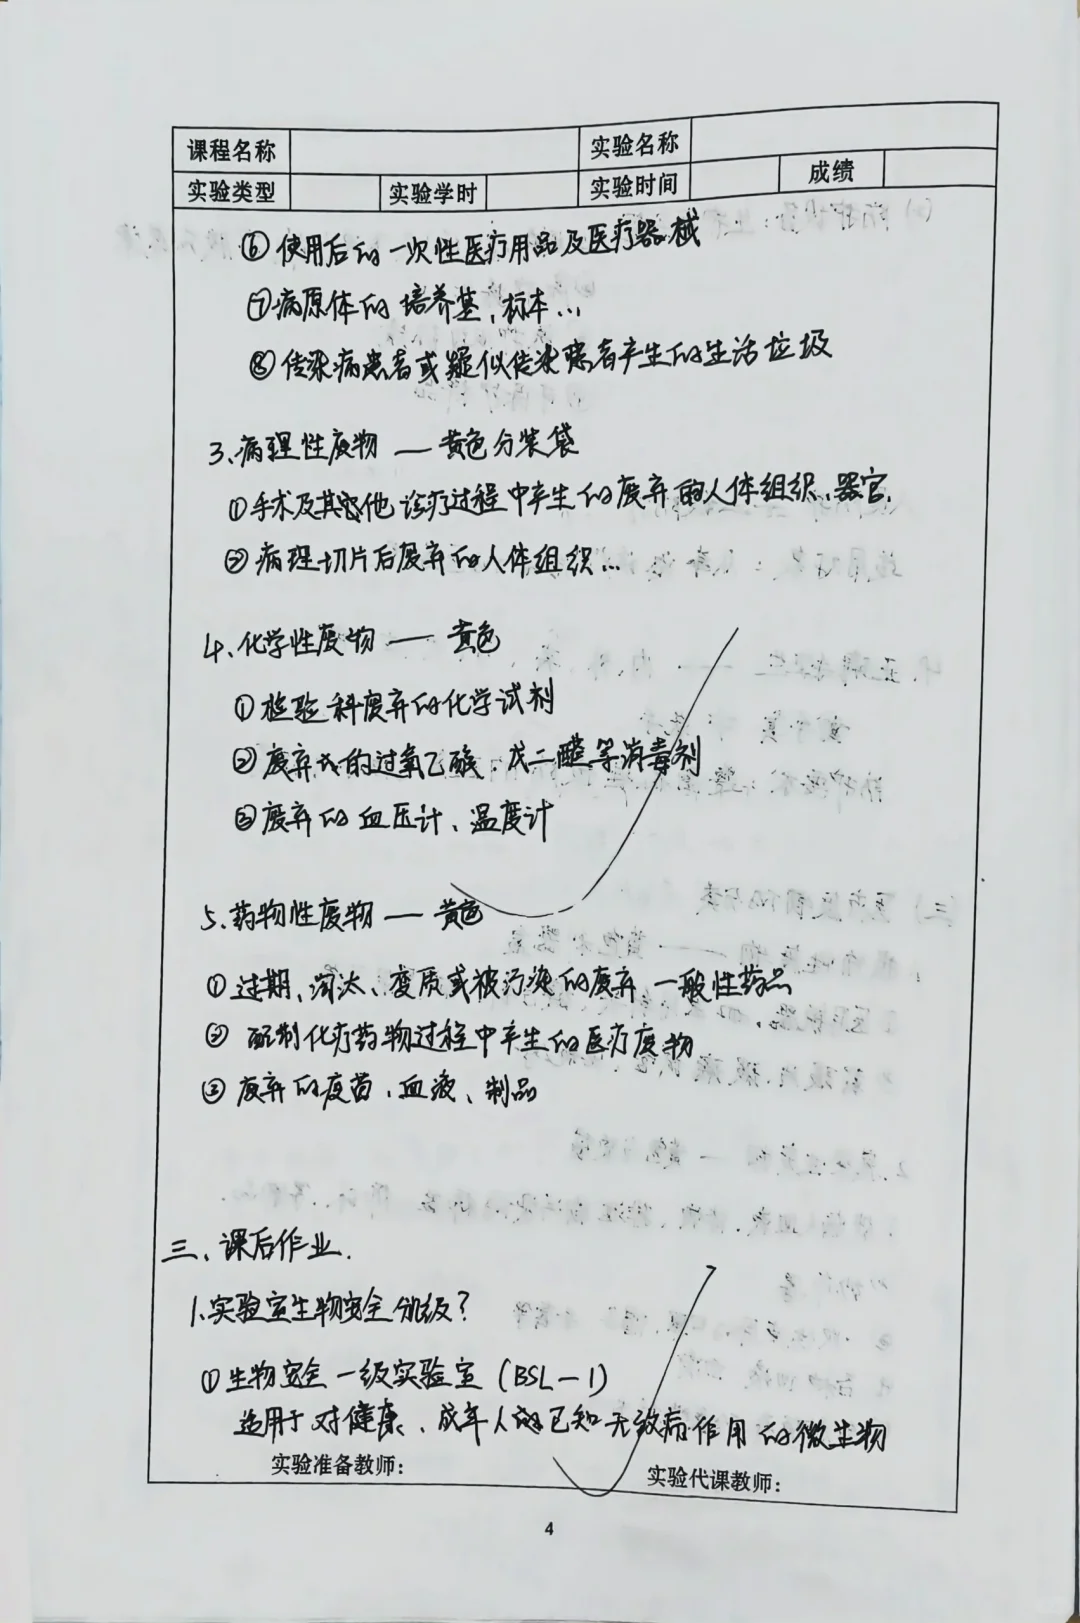 课程名称 实验名称
实验类型 实验学时 实验时间 成绩
⑥使用后的一次性医疗用品及医疗器械
⑦病原体的培养基,标本...
⑧传染病患者或疑似传染患者产生的生活垃圾
3、病理性废物 — 黄色分装袋
①手术及其他诊疗过程中产生的废弃的人体组织、器官.
②病理切片后废弃的人体组织...
4、化学性废物 — 黄色
①检验科废弃的化学试剂
②废弃的过氧乙酸、戊二醛等消毒剂
③废弃的血压计、温度计
5、药物性废物 — 黄色
①过期、淘汰、变质或被污染的废弃一般性药品
②配制化疗药物过程中产生的医疗废物
③废弃的疫苗、血液、制品
三、课后作业.
1、实验室生物安全分级?
①生物安全一级实验室(BSL-1)
适用于对健康、成年人的已知无致病作用的微生物
实验准备教师: 实验代课教师:
4